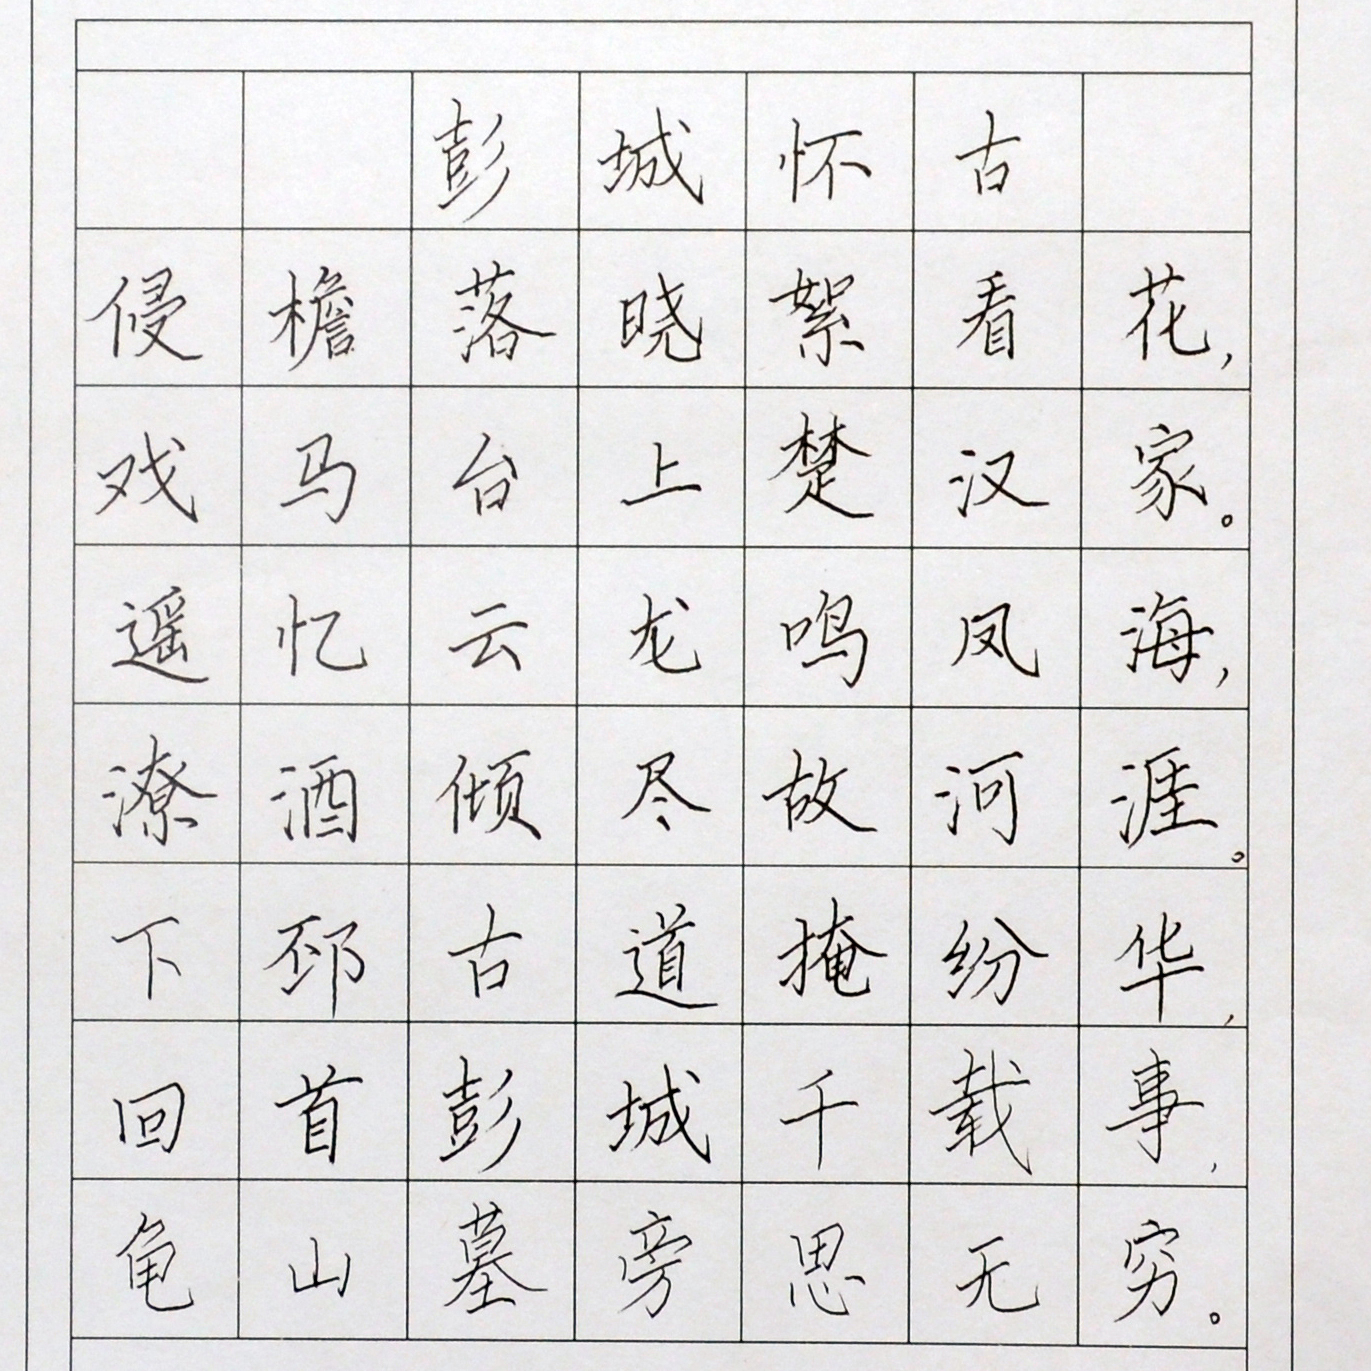 彭城怀古
侵檐落晓絮看花，
戏马台上楚汉家。
遥忆云龙鸣凤海，
潦酒倾尽故河涯。
下邳古道掩纷华，
回首彭城千载事，
龟山墓旁思无穷。